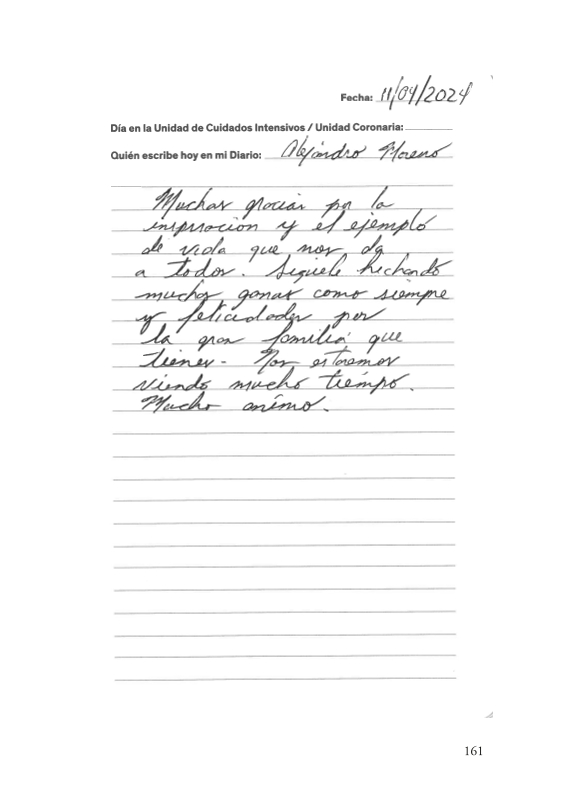 Fecha: 11/04/2024
Día en la Unidad de Cuidados Intensivos / Unidad Coronaria:
Quién escribe hoy en mi Diario: Alejandro Moreno
Muchas gracias por la
inspiracion y el ejemplo
de vida que nos da
a todos. Siguele hechando
muchas ganas como siempre
y felicidades por
la gran familia que
tienes. Nos estaremos
viendo mucho tiempo.
Mucho animo.
161